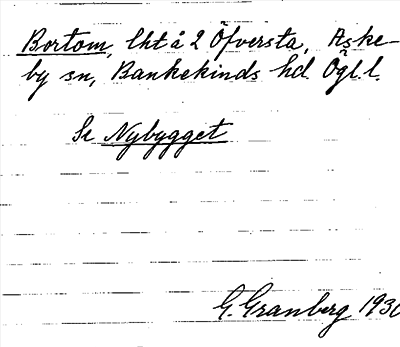 Bortom, lht å 2 Öfversta, Aske-
by sn, Bankekinds hd Ögl. l.
Se Nybygget
G. Granberg 1930